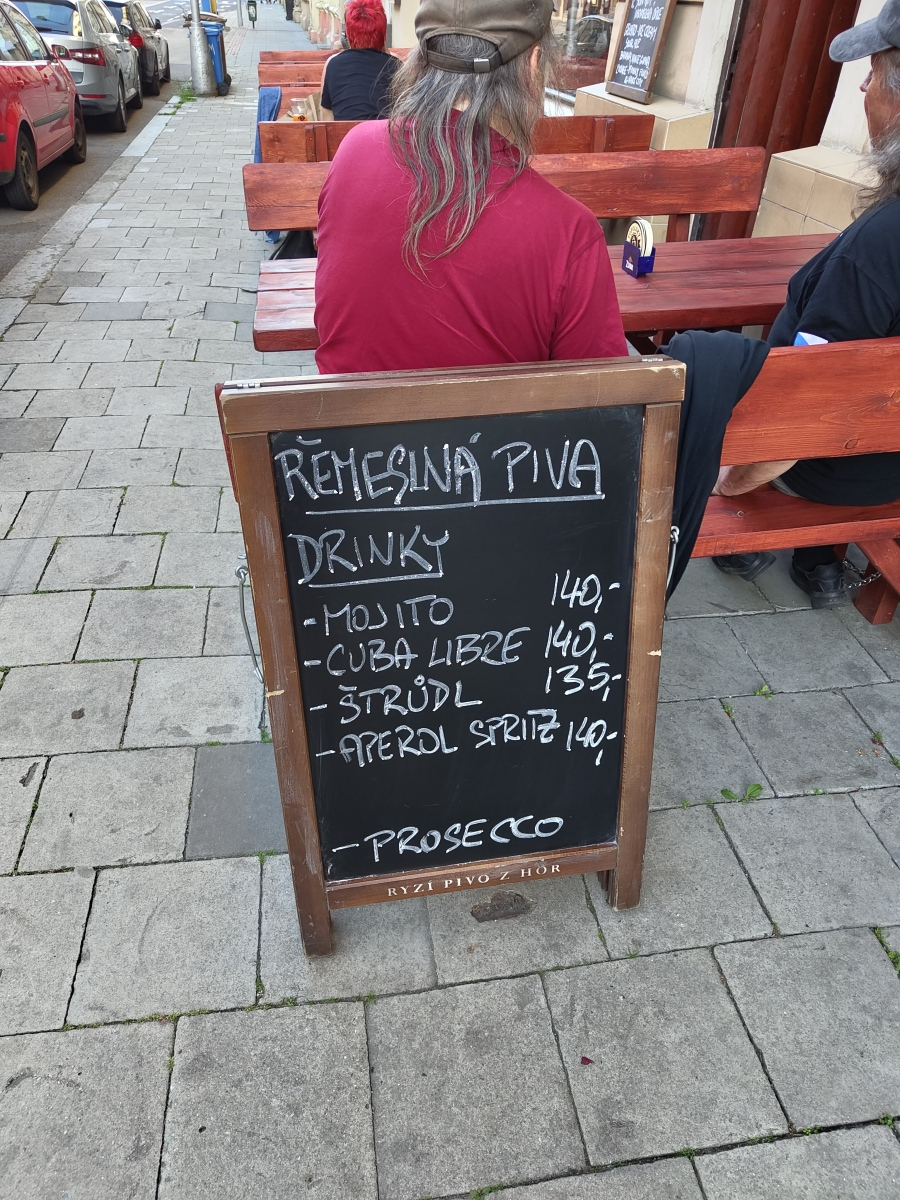 ŘEMESLNÁ PIVA
DRINKY
-MOJITO 140,-
-CUBA LIBRE 140,-
-ŠTRŮDL 135,-
-APEROL SPRITZ 140,-
-PROSECCO
RYZÍ PIVO Z HOR